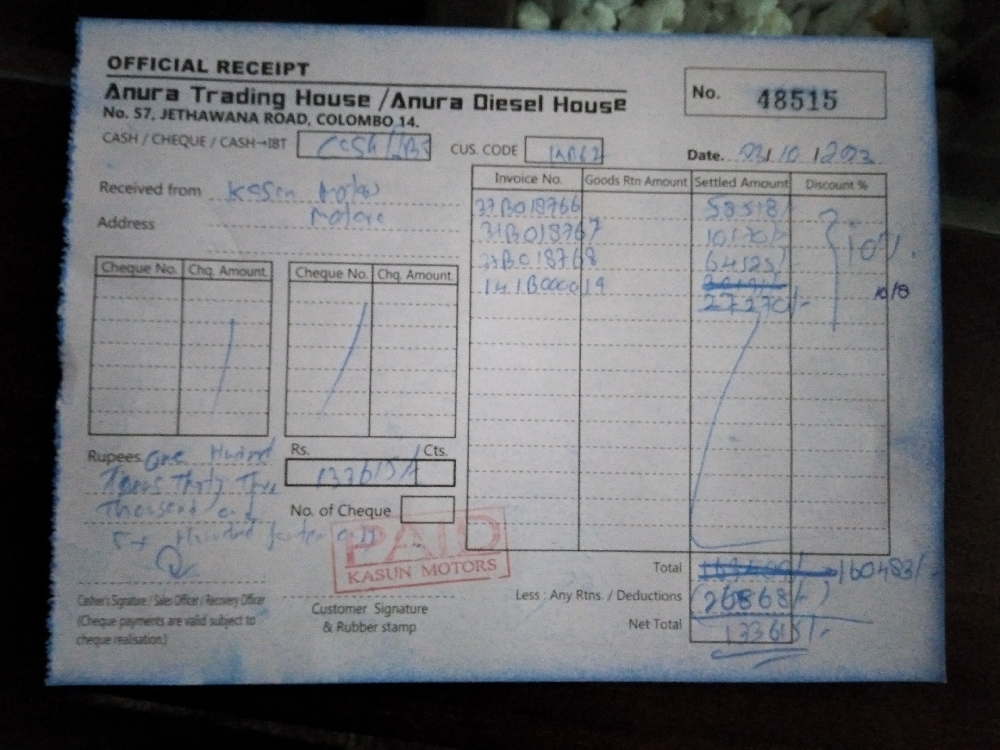 OFFICIAL RECEIPT
Anura Trading House / Anura Diesel House
No. 57, JETHAWANA ROAD, COLOMBO 14.
No. 48515
CASH / CHEQUE / CASH→IBT Cash
CUS. CODE
Date. 03/10/2023
Received from Kasun Motors
Address
Invoice No. Goods Rtn Amount Settled Amount Discount %
37B018766 58518/-
37B018767 10170/-
37B018768 64525/-
141B000019
27270/-
10%
Cheque No. Chq. Amount Cheque No. Chq. Amount
Rupees One Hundred
Thirty Three
Thousand
Hundred
Rs. Cts.
133615/-
No. of Cheque
PAID
KASUN MOTORS
Cashier's Signature / Sales Officer / Recovery Officer
(Cheque payments are valid subject to
cheque realisation.)
Customer Signature
& Rubber stamp
Total 160483/-
Less : Any Rtns. / Deductions (26868/-)
Net Total 133615/-